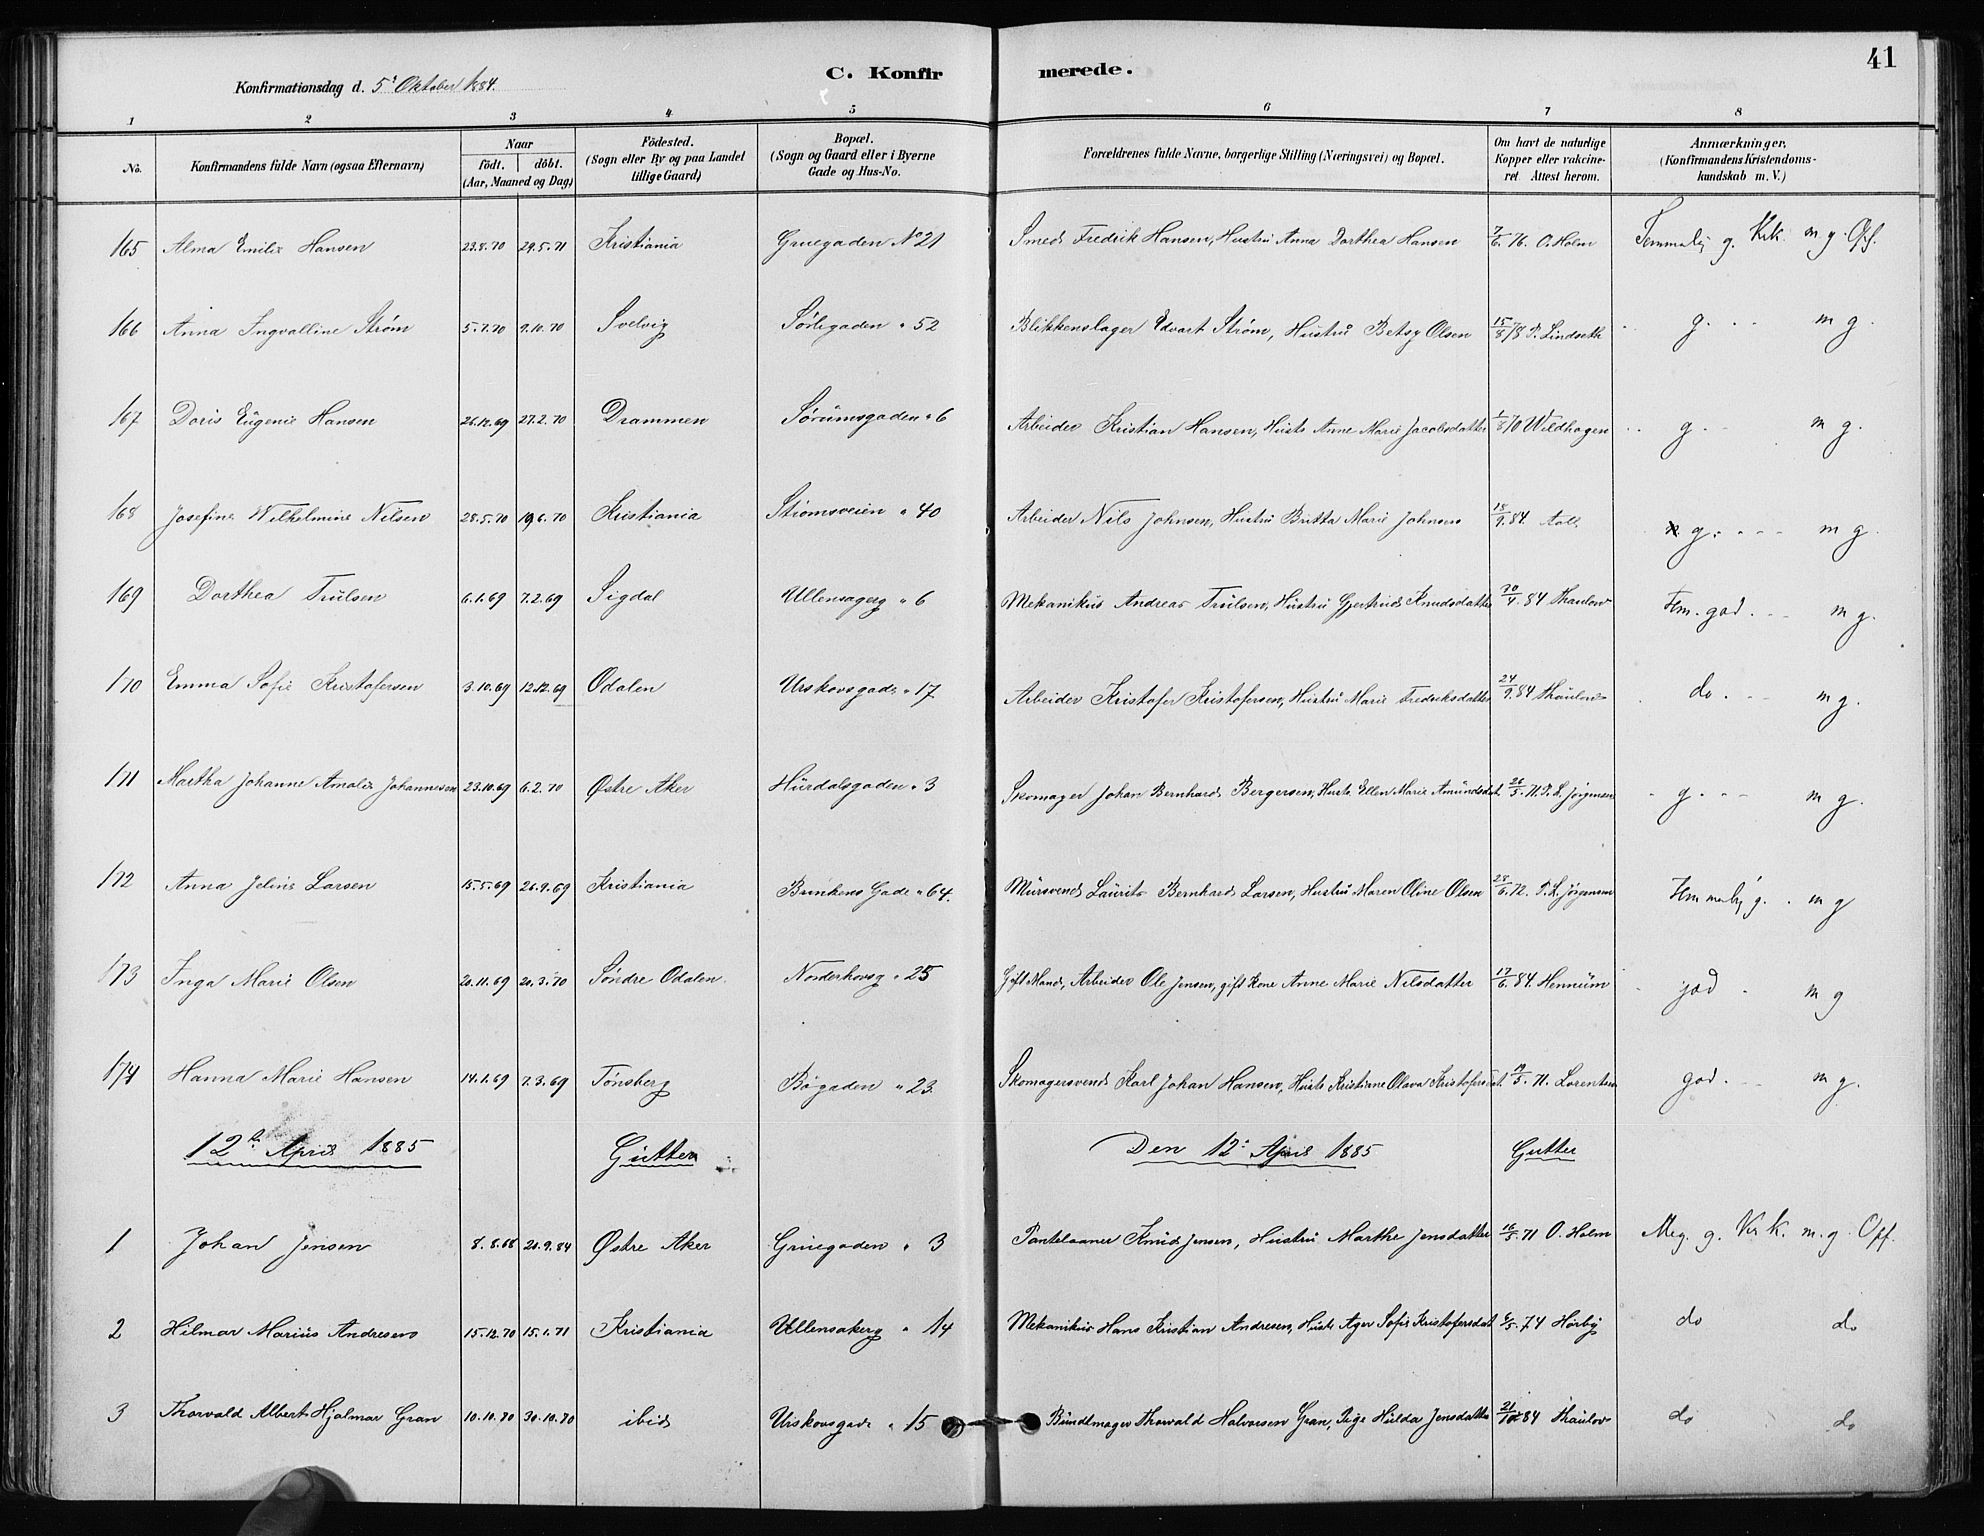 41
C. Konfirmerede.
Konfirmationsdag d. 5t Oktober 1884.
1 2 3 4 5 6 7 8
No. Konfirmandens fulde Navn (ogsaa Efternavn) Naar födt. döbt. (Aar, Maaned og Dag) Födested. (Sogn eller By og paa Landet tillige Gaard) Bopæl. (Sogn og Gaard eller i Byerne Gade og Hus-No. Forældrenes fulde Navne, borgerlige Stilling (Næringsvei) og Bopæl. Om havt de naturlige Kopper eller vakcineret. Attest herom. Anmærkninger. (Konfirmandens Kristendomskundskab m. V.)
165 Alma Emilie Hansen 23.8.70 29.5.71 Kristiania Gruegaden No 21 Smed Fredrik Hansen, Hustru Anna Dorthea Hansen 7/6.76. O. Holm Temmelig g. Krk. m g. Opf.
166 Anna Ingvalline Strøm 5.7.70 9.10.70 Svelvig Sørligaden " 52 Blikkenslager Edvart Strøm, Hustru Betsy Olsen 15/8 78 P. Lindseth g. m g.
167 Doris Eugenie Hansen 26.12.69 27.2.70 Drammen Sørumsgaden " 6 Arbeider Kristian Hansen, Hustr. Anne Marie Jacobsdatter 1/8 70 Wildhagen g. m g.
168 Josefine Wilhelmine Nilsen 28.5.70 19.6.70 Kristiania Strømsveien " 40 Arbeider Nils Johnsen, Hustru Britta Marie Johnsen 18/9.84. g. m g.
169 Dorthea Trulsen 6.1.69 7.2.69 Sigdal Ullensagerg " 6 Mekanikus Andreas Trulsen, Hustru Gjertrud Knudsdatter 30/4.84 Thaulow Tem. god. m g.
170 Emma Sofie Kristofersen 3.10.69 12.12.69 Odalen Urskovsgade " 17 Arbeider Kristofer Kristofersen, Hustru Marie Fredriksdatter 24/9.84 Thaulow do. m g.
171 Martha Johanne Amalie Johannesen 23.10.69 6.2.70 Østre Aker Hurdalsgaden " 3 Skomager Johan Bernhard Bergersen, Hustr. Ellen Marie Amundsdat. 26/5.71. P. L. Jørgensen g. m g.
172 Anna Jeline Larsen 15.5.69 26.9.69 Kristiania Brinkens Gade " 64. Mursvend Laurits Bernhard Larsen, Hustru Maren Oline Olsen 28/6.72. P. L. Jørgensen Temmelig g. m g
173 Inga Marie Olsen 20.11.69 20.3.70 Søndre Odalen Norderhovsg " 25 Gift Mand, Arbeider Ole Jensen, gift Kone Anne Marie Nilsdatter 17/6.84. Hennum god m g
174 Hanna Marie Hansen 14.1.69 7.3.69 Tønsberg Bøgaden " 23. Skomagersvend Karl Johan Hansen, Hustr. Kristiane Olava Kristofersdat. 19/5.71. Lorentsen god. m g.
12te April 1885 Gutter Den 12te April 1885 Gutter
1 Johan Jensen 8.8.68 20.9.84 Østre Aker Gruegaden " 3 Pantelaaner Knud Jensen, Hustru Marthe Jensdatter 16/5.71 O. Holm Meg. g. Kr K. m. g. Opf.
2 Hilmar Marius Andresen 15.12.70 15.1.71 Kristiania Ullensakerg " 14 Mekanikus Hans Kristian Andresen, Hustr. Ager Sofie Kristofersdat 6/5.74 Hørbÿ do do
3 Thorvald Albert Hjalmar Gran 10.10.70 30.10.70 ibid Urskovsgade " 15 Bundtmager Thorvald Halvorsen Gran, Pige Hulda Jensdatter 21/10 84 Thaulow do do